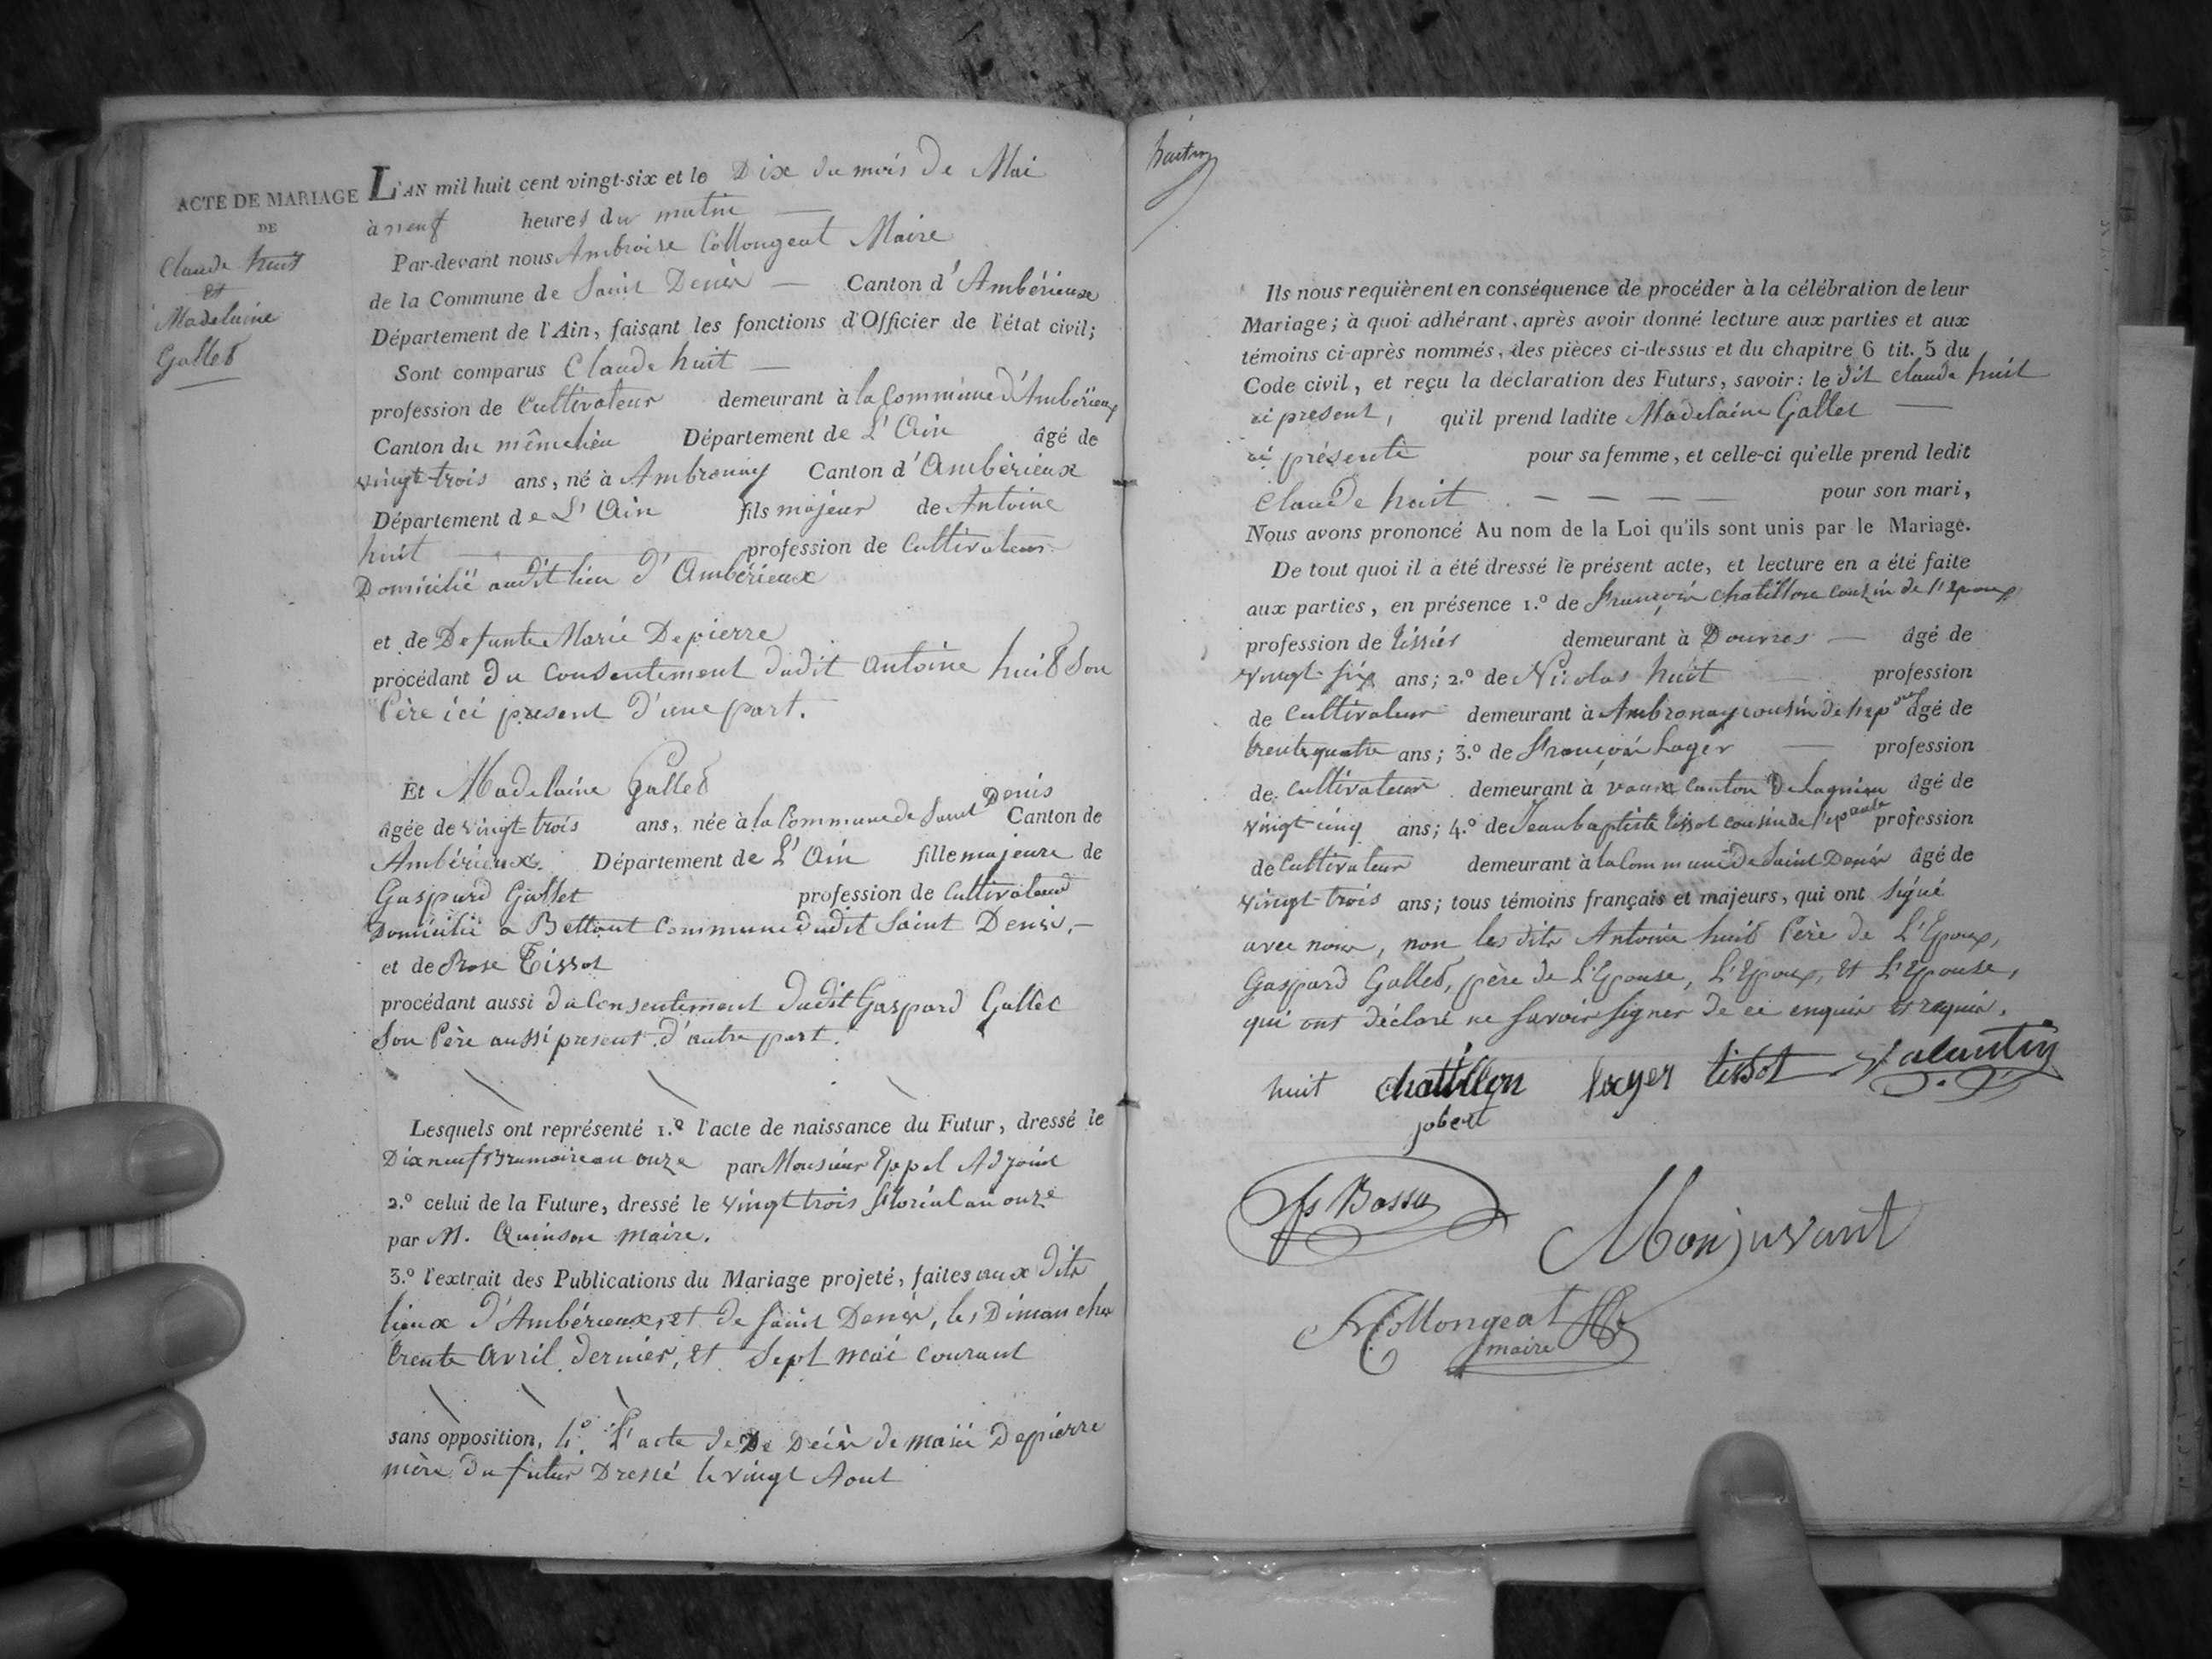 ACTE DE MARIAGE
DE
Claude huit
et
Madelaine
Gallet
L'AN mil huit cent vingt-six et le Dix du mois de Mai
à neuf heures du matin —
Par-devant nous Ambroise Collongeat Maire
de la Commune de Saint Denis — Canton d'Ambérieux
Département de l'Ain, faisant les fonctions d'Officier de l'état civil;
Sont comparus Claude huit —
profession de Cultivateur demeurant à la Commune d'Ambérieux
Canton du même lieu Département de L'Ain âgé de
vingt-trois ans, né à Ambronay Canton d'Ambérieux
Département de L'Ain fils majeur de Antoine
huit — profession de Cultivateur
Domicilié audit lieu d'Ambérieux
et de Defunte Marie Depierre
procédant du Consentement dudit Antoine huit Son
Père ici present d'une part.
Et Madelaine Gallet
âgée de vingt-trois ans, née à la Commune de Saint Denis Canton de
Ambérieux. Département de L'Ain fille majeure de
Gaspard Gallet profession de Cultivateur
Domicilié a Bettant Commune dudit Saint Denis, —
et de Rose Tissot
procédant aussi du Consentement dudit Gaspard Gallet
Son Père aussi present d'autre part.
Lesquels ont représenté 1.º l'acte de naissance du Futur, dressé le
Dix neuf Brumaire an onze par Monsieur Eppel Adjoint
2.º celui de la Future, dressé le vingt trois floréal an onze
par M. Quinson maire.
3.º l'extrait des Publications du Mariage projeté, faites aux dits
lieux d'Ambérieux et de Saint Denis, les Dimanches
trente avril dernier, et Sept mai courant
sans opposition, 4.º L'acte de De Décès de marie Depierre
mère du futur Dressé le vingt Aout
huit
Ils nous requièrent en conséquence de procéder à la célébration de leur
Mariage; à quoi adhérant, après avoir donné lecture aux parties et aux
témoins ci-après nommés, des pièces ci-dessus et du chapitre 6 tit. 5 du
Code civil, et reçu la déclaration des Futurs, savoir: le dit claude huit
ci present, qu'il prend ladite Madelaine Gallet —
ci présente pour sa femme, et celle-ci qu'elle prend ledit
Claude huit — — — — pour son mari,
Nous avons prononcé Au nom de la Loi qu'ils sont unis par le Mariage.
De tout quoi il a été dressé le présent acte, et lecture en a été faite
aux parties, en présence 1.º de François chatillon cousin de l'Epoux
profession de tissier demeurant à Douvres — âgé de
vingt-six ans; 2.º de Nicolas huit profession
de Cultivateur demeurant à Ambronay cousin de l'ep âgé de
trente quatre ans; 3.º de François Loger — profession
de Cultivateur demeurant à vaux Canton De Lagnieu âgé de
vingt cinq ans; 4.º de Jean baptiste tissot cousin de l'epouse profession
de Cultivateur demeurant à la Commune de Saint Denis âgé de
vingt-trois ans; tous témoins français et majeurs, qui ont Signé
avec nous, non les dits Antoine huit Père de L'Epoux,
Gaspard Gallet, père de L'Epouse, L'Epoux, et L'Epouse,
qui ont déclaré ne savoir signer de ce enquis et requis.
huit chatillon loyer tissot Valantin
jobert
Monjuvant
Collongeat
maire